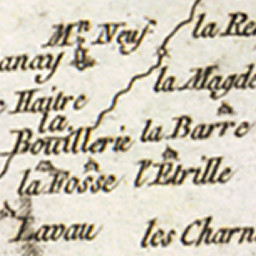 Mⁿ Neuf
la Re
anay
la Magde
e Haitre
la Bouillerie
la Barre
la Fosse
l'Etrille
Lavau
les Charn